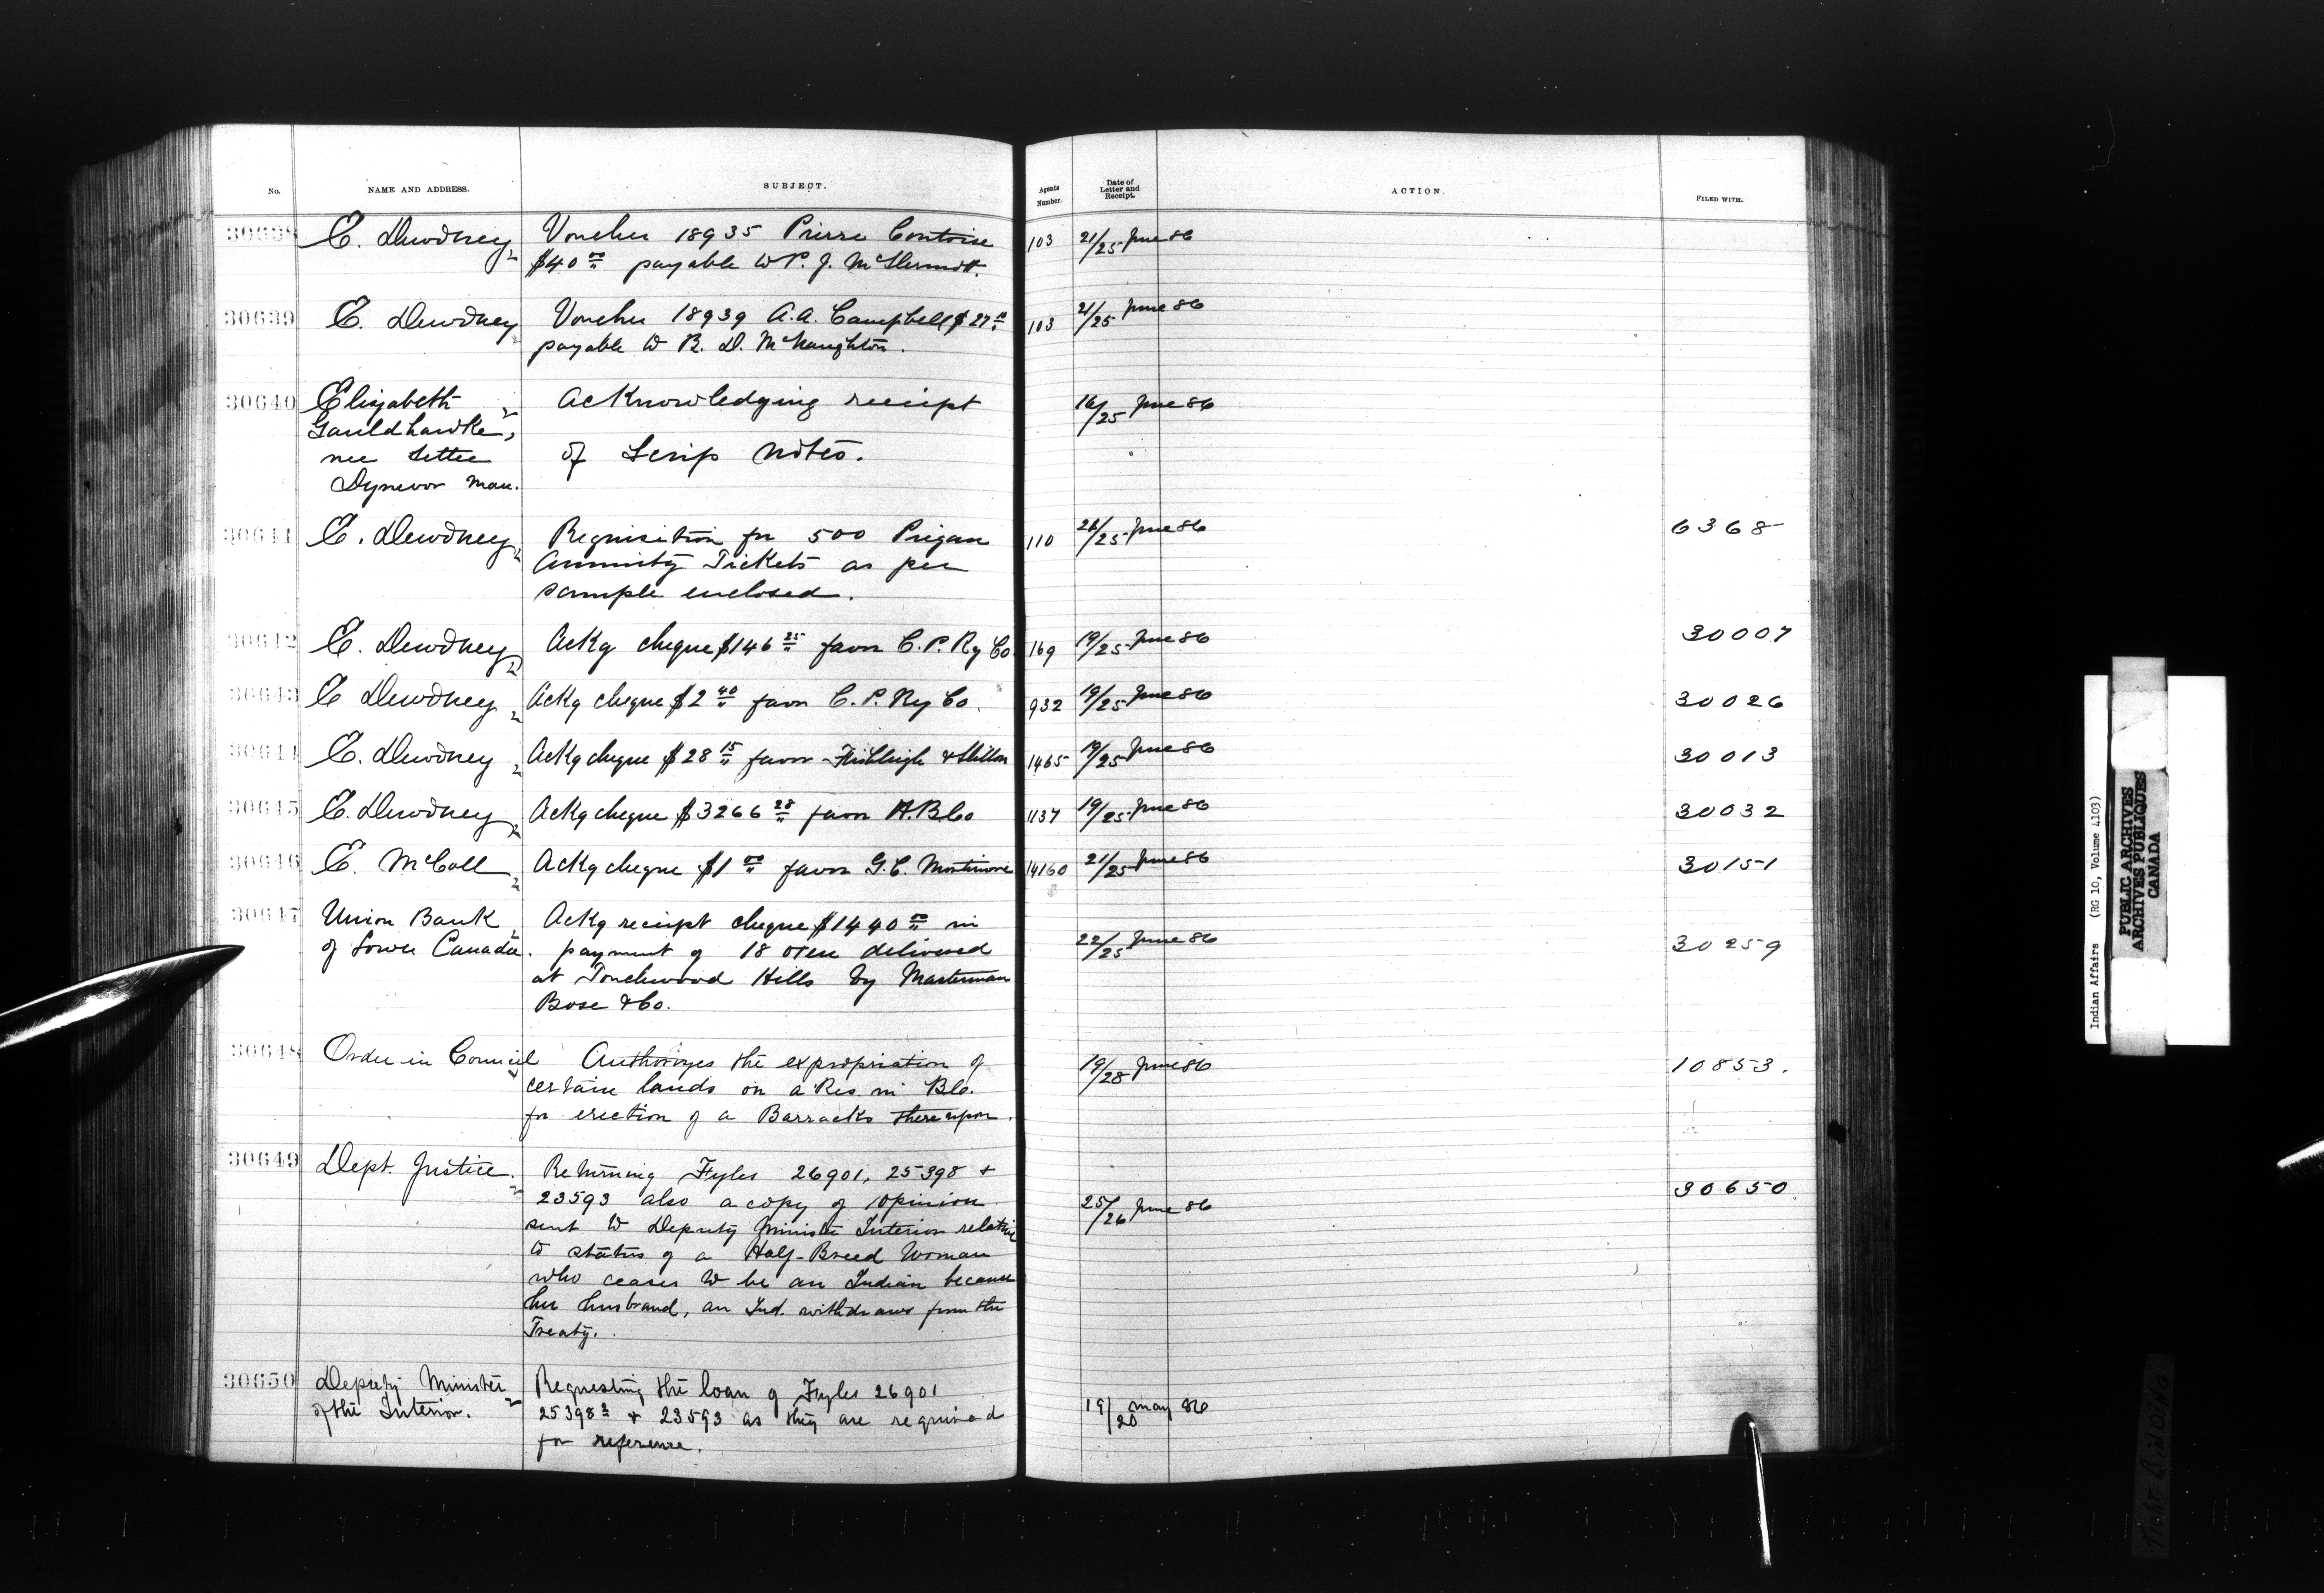 No.
NAME AND ADDRESS.
SUBJECT.
Agents Number.
Date of Letter and Receipt.
ACTION.
FILED WITH.
30638 E. Dewdney Voucher 18935 Pierre Contoise 103 21/25 June 86
$40 00/" payable to P. J. McDermott.
30639 E. Dewdney Voucher 18939 A.A. Campbell $27 103 21/25 June 86
payable to R. D. McNaughton.
30640 Elizabeth Acknowledging receipt 16/25 June 86
Gauldhawke,
nee Settee of Scrip notes.
Dynevor Man.
30641 E. Dewdney Requisition for 500 Piegan 110 21/25 June 86 6368
Annuity Tickets as per
sample enclosed.
30642 E. Dewdney Ackg cheque $146 25/" favor C. P. Ry Co 169 19/25 June 86 30007
30643 E Dewdney Ackg cheque $2 40/" favor C. P. Ry Co. 932 19/25 June 86 30026
30644 E. Dewdney Ackg cheque $28 15/" favor 1465 19/25 June 86 30013
30645 E. Dewdney Ackg cheque $3266 28/" favor H.B.Co 1137 19/25 June 86 30032
30646 E. McColl Ackg cheque $1 00/" favor G. C. Mortimore 14160 21/25 June 86 30151
30647 Union Bank Ackg receipt cheque $1440 00/" in
of Lower Canada. payment of 18 oxen delivered 22/25 June 86 30259
at Touchwood Hills by Masterman
Bose & Co.
30648 Order in Council Authorizes the expropriation of 19/28 June 86 10853.
certain lands on a Res. in B.C.
for erection of a Barracks thereupon.
30649 Dept. Justice. Returning Fyles 26901, 25398 &
23593 also a copy of opinion 25/26 June 86 30650
sent to Deputy Minister Interior relative
to status of a Half-Breed Woman
who ceases to be an Indian because
her husband, an Ind. withdraws from the
Treaty.
30650 Deputy Minister Requesting the loan of Fyles 26901
of the Interior. 25398 2 & 23593 as they are required 19/20 May 86
for reference.
Indian Affairs (RG 10, Volume 4103)
PUBLIC ARCHIVES
ARCHIVES PUBLIQUES
CANADA
TIGHT BINDING